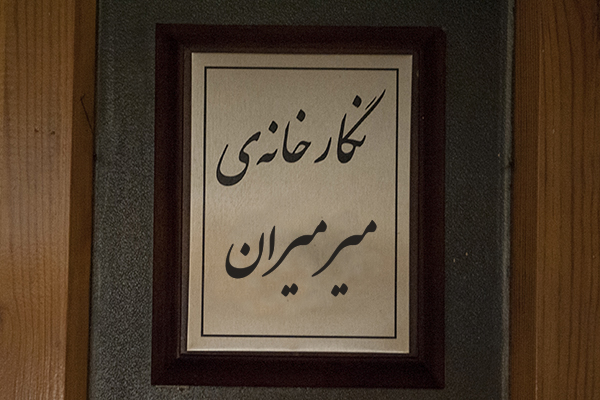 نگارخانه‌ی
میرمیران